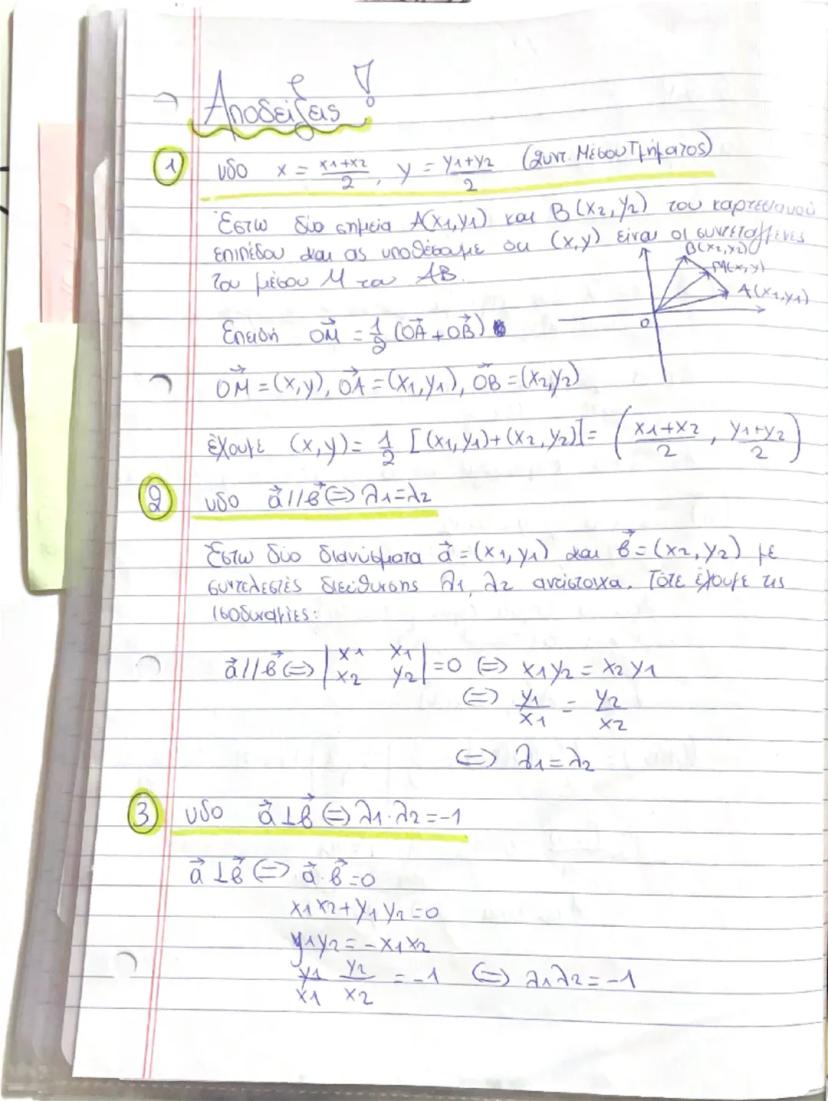 Αποδείξεις !
① νδο x = x1+x2/2, y = y1+y2/2 (Συντ. Μέσου Τμήματος)
Έστω δύο σημεία A(x1,y1) και B(x2,y2) του καρτεσιανού
επιπέδου και ας υποθέσουμε οτι (x,y) είναι οι συντεταγμένες
του μέσου M του AB.
B(x2,y2)
M(x,y)
A(x1,y1)
O
Επειδή OM⃗ = 1/2 (OA⃗ + OB⃗)
OM⃗ = (x,y), OA⃗ = (x1,y1), OB⃗ = (x2,y2)
έχουμε (x,y) = 1/2 [(x1,y1)+(x2,y2)] = (x1+x2/2, y1+y2/2)
② νδο a⃗//β⃗ (=) λ1=λ2
Έστω δύο διανύσματα a⃗ = (x1,y1) και β⃗ = (x2,y2) με
συντελεστές διεύθυνσης λ1, λ2 αντίστοιχα. Τότε έχουμε τις
ισοδυναμίες:
a⃗//β⃗ (=) |x1 x1
x2 y2| = 0 (=) x1y2 = x2y1
(=) y1/x1 = y2/x2
(=) λ1=λ2
③ νδο a⃗⊥β⃗ (=) λ1·λ2=-1
a⃗⊥β⃗ (=) a⃗·β⃗=0
x1x2+y1y2=0
y1y2=-x1x2
y1/x1 y2/x2 = -1 (=) λ1λ2=-1